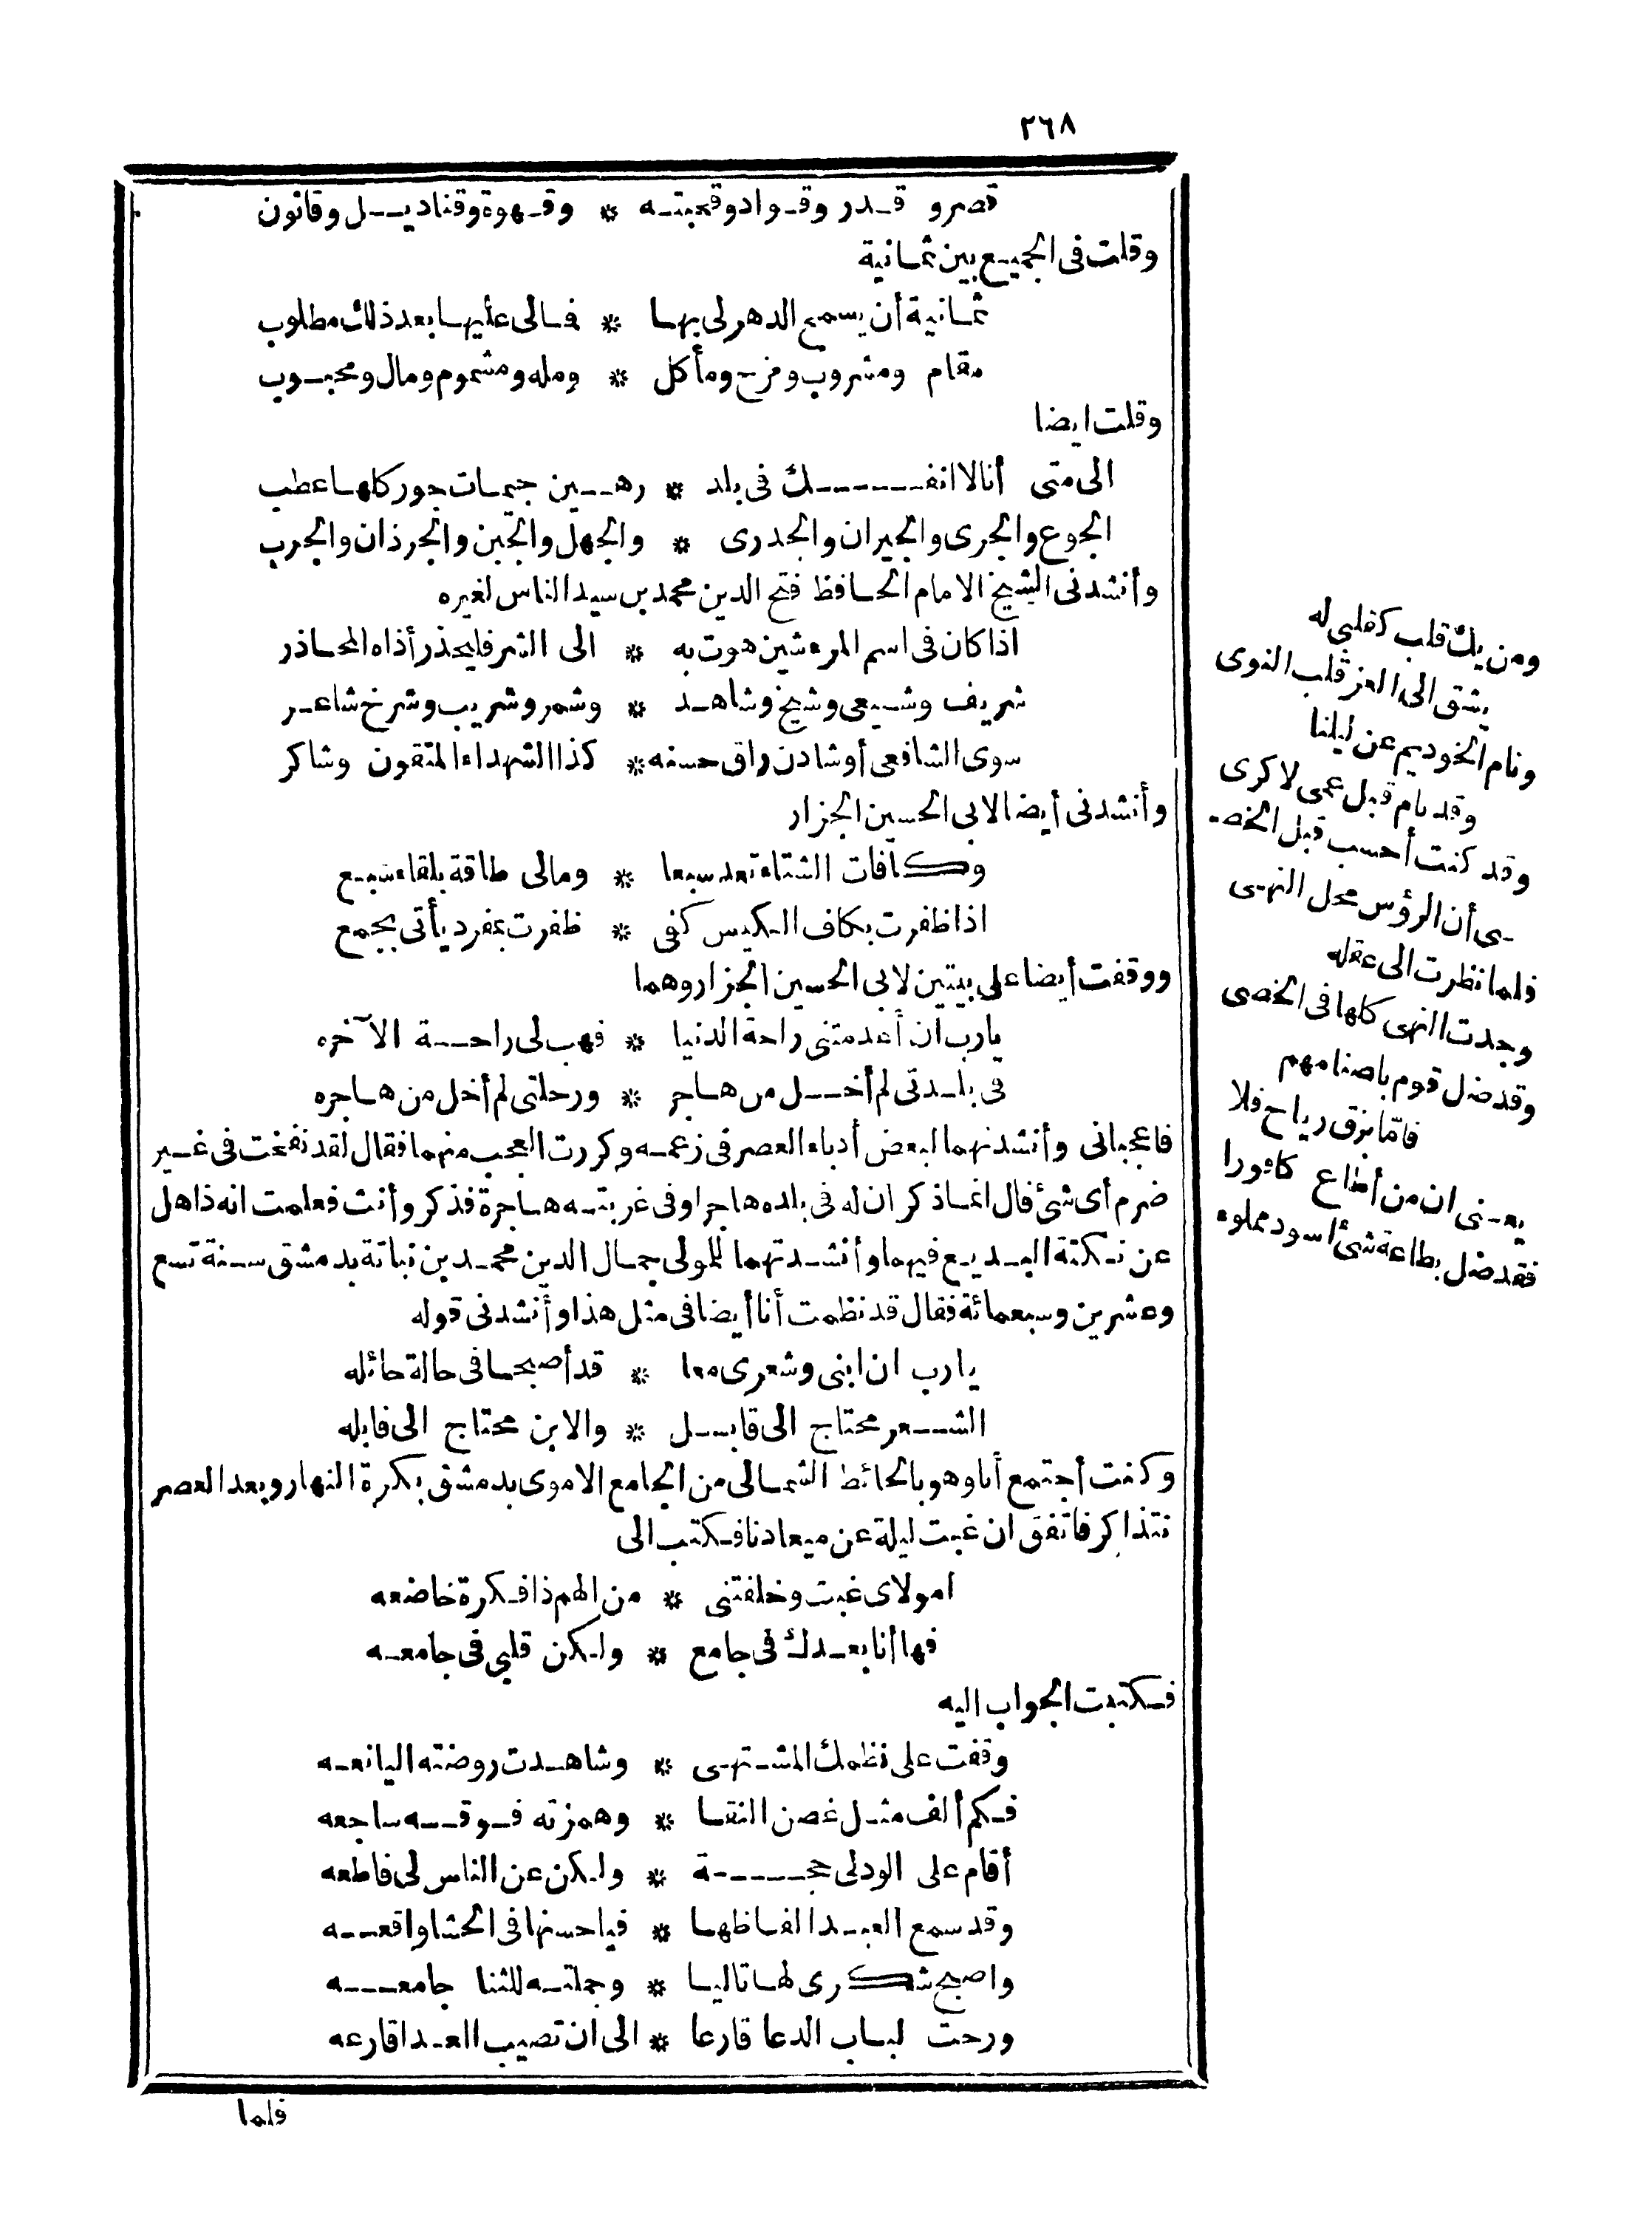 ٢٦٨
قصر و قدر وقواد وقحبته * وقهوة وقناديل وقانون
وقلت فى الجميع بين ثمانية
ثمانية أن يسمع الدهر لى بها * فمالى عليها بعد ذلك مطلوب
مقام ومشروب ومزح ومأكل * ومله ومشموم ومال ومحبوب
وقلت ايضا
الى متى أنا لا انفك فى بلد * رهين جيمات جور كلها عطب
الجوع والجرى والجيران والجدرى * والجهل والجبن والجرذان والجرب
وأنشدنى الشيخ الامام الحافظ فتح الدين محمد بن سيد الناس لغيره
اذا كان فى اسم المرء شين هوت به * الى الشر فليحذر أذاه المحاذر
شريف وشيعى وشيخ وشاهد * وشمر وشريب وشرخ شاعر
سوى الشافعى أو شادن راق حسنه * كذا الشهداء المتقون وشاكر
وأنشدنى أيضا لابى الحسين الجزار
وكافات الشتاء تعد سبعا * ومالى طاقة بلقاء سبع
اذا ظفرت بكاف الكيس كفى * ظفرت بمفرد يأتى بجمع
ووقفت أيضا على بيتين لابى الحسين الجزار وهما
يارب ان أعدمتنى راحة الدنيا * فهب لى راحة الآخره
فى بلدتى لم أخل من هاجر * ورحلتى لم أخل من هاجره
فاعجبانى وأنشدتهما لبعض أدباء العصر فى زعمه وكررت العجب منهما فقال لقد نفخت فى غير
ضرم أى شئ قال انما ذكر ان له فى بلده هاجرا وفى غربته هاجرة فذكر وأنث فعلمت انه ذاهل
عن نكتة البديع فيهما وأنشدتهما للمولى جمال الدين محمد بن نباتة بدمشق سنة تسع
وعشرين وسبعمائة فقال قد نظمت أنا أيضا فى مثل هذا وأنشدنى قوله
يارب ان ابنى وشعرى معا * قد أصبحا فى حالة حائله
الشعر محتاج الى قابل * والابن محتاج الى قابله
وكنت أجتمع أنا وهو بالحائط الشمالى من الجامع الاموى بدمشق بكرة النهار وبعد العصر
نتذاكر فاتفق ان غبت ليلة عن ميعادنا فكتب الى
امولاى غبت وخلفتنى * من الهم ذا فكرة خاضعه
فها أنا بعدك فى جامع * ولكن قلبى فى جامعه
فكتبت الجواب اليه
وقفت على نظمك المشتهى * وشاهدت روضته اليانعه
فكم ألف مثل غصن النقا * وهمزته فوقه ساجعه
أقام على الود لى حجة * ولكن عن الناس لى قاطعه
وقد سمع العبد الفاظها * فياحسنها فى الحشا واقعه
واصبح شكرى لها تاليا * وجملته للثنا جامعه
ورحت لباب الدعا قارعا * الى ان تصيب العدا قارعه
فلما
ومن يك قلب كقلبى له
يشق الى العز قلب النوى
ونام الخويدم عن ليلنا
وقد نام قبل عمى لا كرى
وقد كنت أحسب قبل الخصـ
ـى أن الرؤس محل النهى
فلما نظرت الى عقله
وجدت النهى كلها فى الخصى
وقد ضل قوم باصنامهم
فامّا بزق رياح فلا
يعنى ان من أطاع كافورا
فقد ضل بطاعة شئ أسود مملوء